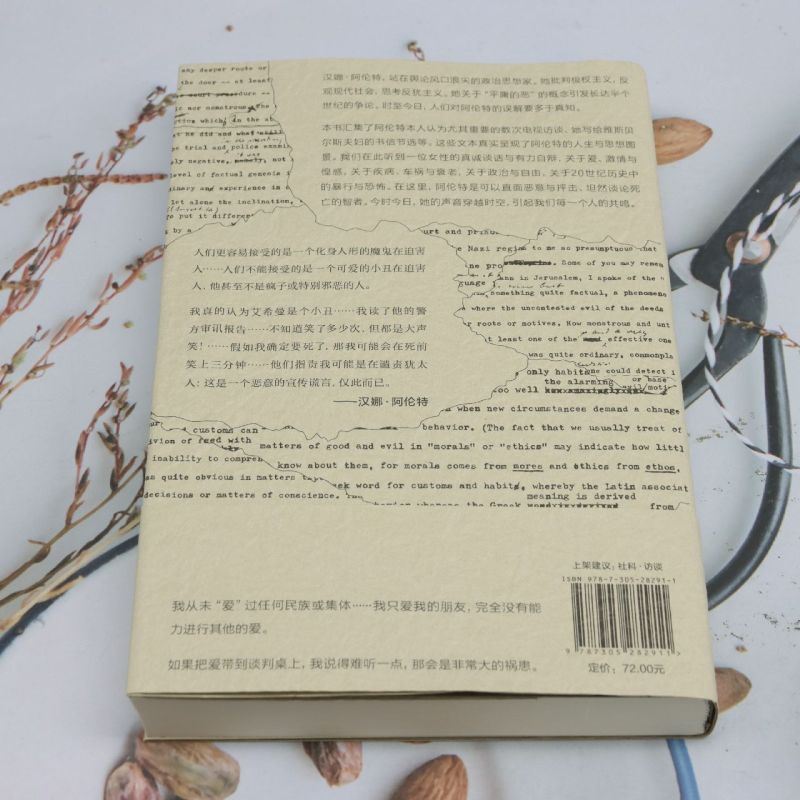 any deeper roots or
the door -- at least
our court procedure --
ic nor monstrous. The
he did and what still
he trial and police exami
ly negative,
level of factual genesis i
inary and experience in
let alone the inclination,
To put it differen
by a
汉娜·阿伦特，站在舆论风口浪尖的政治思想家。她批判极权主义，反
观现代社会，思考反犹主义。她关于“平庸的恶”的概念引发长达半个
世纪的争论。时至今日，人们对阿伦特的误解要多于真知。
本书汇集了阿伦特本人认为尤其重要的数次电视访谈、她写给雅斯贝
尔斯夫妇的书信节选等。这些文本真实呈现了阿伦特的人生与思想图
景。我们在此听到一位女性的真诚谈话与有力自辩，关于爱、激情与
惶惑，关于疾病、车祸与衰老，关于政治与自由，关于20世纪历史中
的暴行与恐怖。在这里，阿伦特是可以直面恶意与抨击、坦然谈论死
亡的智者。今时今日，她的声音穿越时空，引起我们每一个人的共鸣。
人们更容易接受的是一个化身人形的魔鬼在迫害
人……人们不能接受的是一个可爱的小丑在迫害
人、他甚至不是疯子或特别邪恶的人。
我真的认为艾希曼是个小丑……我读了他的警
方审讯报告……不知道笑了多少次，但都是大声
笑！……假如我确定要死了，那我可能会在死前
笑上三分钟……他们指责我可能是在谴责犹太
人：这是一个恶意的宣传谎言，仅此而已。
——汉娜·阿伦特
urt and
e Nazi regim to me so presumptuous that
ne pro Some of you may remem
guage in Jerusalem, I spoke of the
something quite factual, a phenomena
where the uncontested evil of the deeds
r roots or motives. How monstrous and unt
t least one of the effective one
was quite ordinary, commonpla
only habits one could detect i
the alarming or base
too well evil moti
when new circumstances demand a change
behavior. (The fact that we usually treat of
customs can
ivion of
matters of good and evil in "morals" or "ethics" may indicate how littl
inability to compreh
know about them, for morals comes from mores and ethics from ethos,
as quite obvious in matters
ek word for customs and habits, whereby the Latin associat
decisions or matters of conscience.
meaning is derived
whereas the Greek
from
我从未“爱”过任何民族或集体……我只爱我的朋友，完全没有能
力进行其他的爱。
如果把爱带到谈判桌上，我说得难听一点，那会是非常大的祸患。
上架建议：社科·访谈
ISBN 978-7-305-28291-1
9 787305 282911 >
定价：72.00元